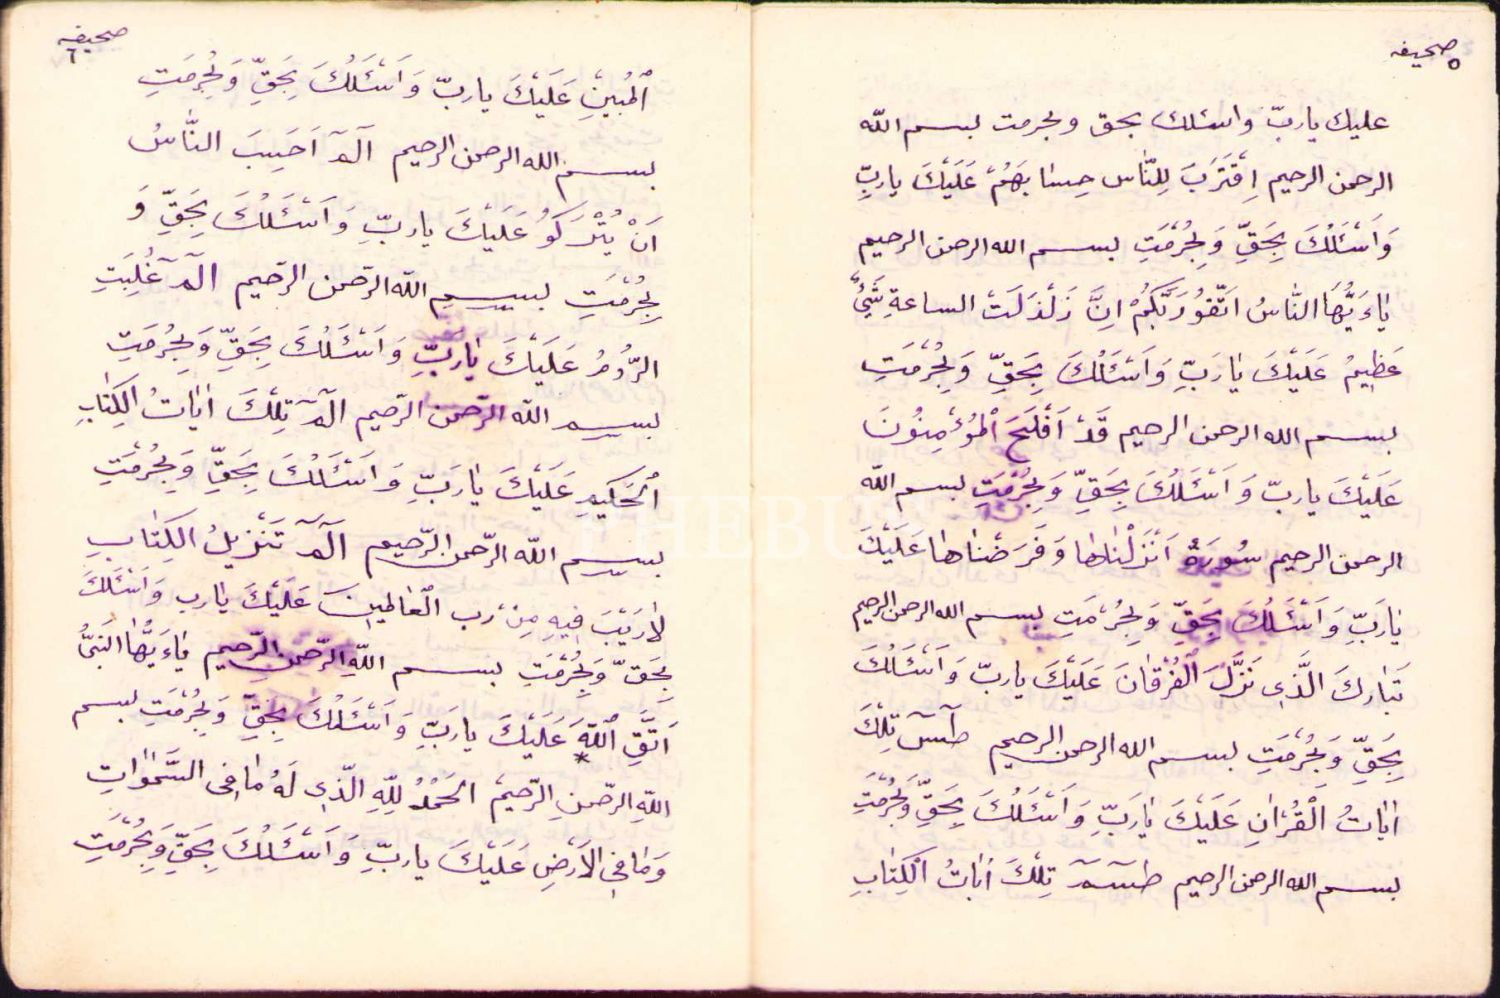 صحيفه ٥
عليك ياربّ واسئلك بحق وبحرمت بسم الله
الرحمن الرحيم اِقْتَرَبَ لِلنَّاس حِسابَهُمْ عَلَيْكَ ياربِّ
وَاَسْئَلُكَ بِحَقِّ وَبِحُرْمَتِ بسم الله الرحمن الرحيم
يٰاءَيُّهَا النَّاسُ اتَّقُوُ رَبَّكُمْ اِنَّ زَلْذَلَتْ الساعةِ شَيْئٌ
عَظِيمُ عَلَيْكَ يٰارَبِّ وَاَسْئَلُكَ بِحَقِّ وَبِحُرْمَتِ
بسم الله الرحمن الرحيم قَدْ اَفْلَحَ اْلمُوءْمِنُونَ
عَلَيْكَ ياربّ وَاَسْئَلُكَ بِحَقِّ وَبِحُرْمَتِ بسم الله
الرحمن الرحيم سُورَةٌ اَنْزَلْنٰاهٰا وَفَرَضْنٰاهٰا عَلَيْكَ
يٰارَبِّ وَاَسْئَلُكَ بِحَقِّ وَبِحُرْمَتِ بسم الله الرحمن الرحيم
تَبٰارِكَ الَّذِى نَزَّلَ اْلفُرْقٰانَ عَلَيْكَ ياربّ وَاَسْئَلُكَ
بِحَقِّ وَبِحُرْمَتِ بسم الله الرحمن الرحيم طٓسٓ تِلْكَ
اٰيٰاتُ اْلقُرْاٰنِ عَلَيْكَ يٰارَبِّ وَاَسْئَلُكَ بِحَقِّ وَبِحُرْمَتِ
بسم الله الرحمن الرحيم طٓسٓمٓ تِلْكَ اٰيٰاتُ اْلكِتٰابِ
صحيفه ٦
اْلمُبينْ عَلَيْكَ ياربّ وَاَسْئَلُكَ بِحَقِّ وَبِحُرْمَتِ
بسم الله الرحمن الرحيم آلٓمٓ اَحَسِبَ النَّاسُ
اَنْ يُتْرَكوُ عَلَيْكَ ياربِّ وَاَسْئَلُكَ بِحَقِّ وَ
بِحُرْمَتِ بسم اللّه الرحمن الرّحيم الٓمٓ غُلِبَتِ
الرُّومُ عَلَيْكَ يٰاربِّ وَاَسْئَلُكَ بِحَقِّ وَبِحُرْمَتِ
بسم اللّه الرّحمن الرّحيم الٓمٓ تِلْكَ اٰيٰاتُ الْكِتٰابِ
اْلحَكيم عَلَيْكَ يٰارَبِّ وَاَسْئَلُكَ بِحَقِّ وَبِحُرْمَتِ
بسم اللّه الرّحمن الرّحيم الٓمٓ تَنْزيلُ الْكِتٰابِ
لاٰرَيْبَ فيهِ مِنْ رب الْعٰالمينَ عَلَيْكَ يٰارب وَاَسْئَلُكَ
بِحَقّ وَبِحُرْمَتِ بسم اللّهِ الرّحمن الرّحيم يٰاءَيُّهَا النَّبىُّ
اَتَّقِ اْللّهَ عَلَيْكَ يارَبِّ وَاَسْئَلُكَ بِحَقِّ وَبِحُرْمَتِ بسم
اللّهِ الرحّمنِ الرّحيمْ الحَمْدُ لِلّهِ الّذِى لَهُ مٰا فِى السَّمٰوٰاتِ
وَمٰا فِى الاَرْضِ عَلَيْكَ ياربِّ وَاَسْئَلُكَ بِحَقِّ وَبِحُرْمَتِ
PHEBUS